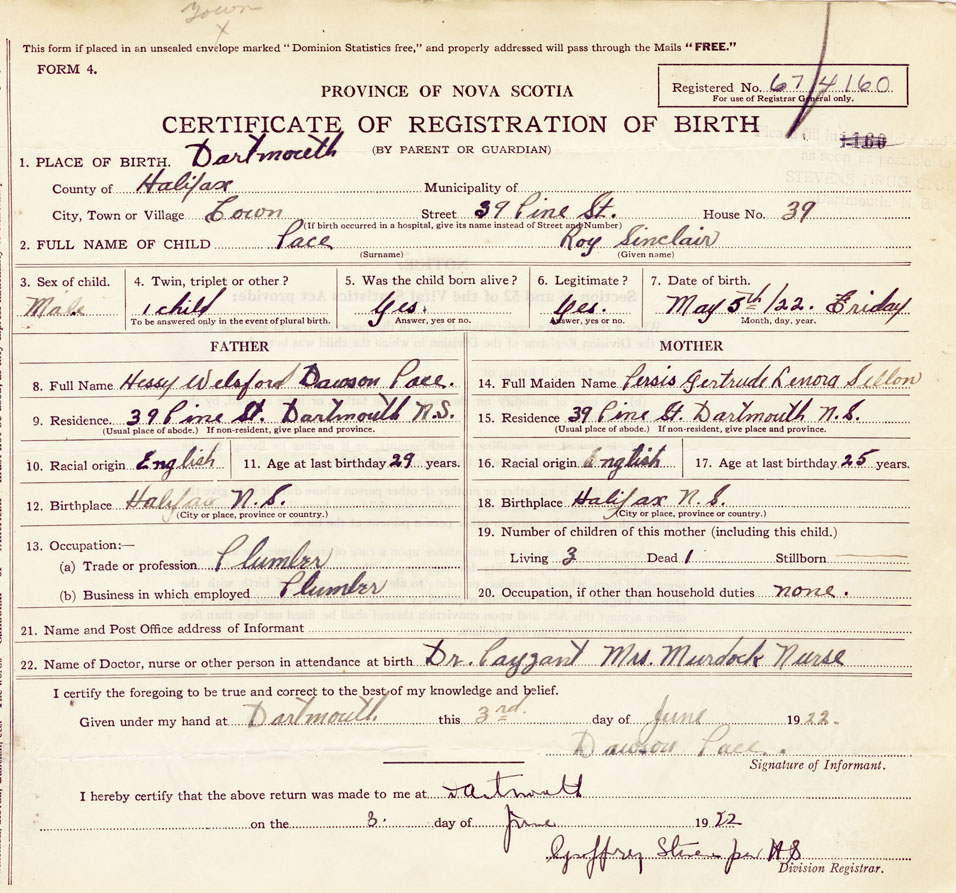 Town
X
This form if placed in an unsealed envelope marked "Dominion Statistics free," and properly addressed will pass through the Mails "FREE."
FORM 4.
Registered No. 67/4160
For use of Registrar General only.
PROVINCE OF NOVA SCOTIA
CERTIFICATE OF REGISTRATION OF BIRTH
(BY PARENT OR GUARDIAN)
1160
1. PLACE OF BIRTH. Dartmouth
County of Halifax Municipality of
City, Town or Village Town Street 39 Pine St. House No. 39
(If birth occurred in a hospital, give its name instead of Street and Number)
2. FULL NAME OF CHILD Pace Roy Sinclair
(Surname) (Given name)
3. Sex of child. 4. Twin, triplet or other? 5. Was the child born alive? 6. Legitimate? 7. Date of birth.
Male 1 child Yes. Yes. May 5th/22. Friday
To be answered only in the event of plural birth. Answer, yes or no. Answer, yes or no. Month, day, year.
FATHER
8. Full Name Hessy Welsford Dawson Pace.
9. Residence. 39 Pine St. Dartmouth N.S.
(Usual place of abode.) If non-resident, give place and province.
10. Racial origin English 11. Age at last birthday 29 years.
12. Birthplace Halifax N.S.
(City or place, province or country.)
13. Occupation:—
(a) Trade or profession Plumber
(b) Business in which employed Plumber
MOTHER
14. Full Maiden Name Persis Gertrude Lenora Sellon
15. Residence 39 Pine St. Dartmouth N.S.
(Usual place of abode.) If non-resident, give place and province.
16. Racial origin English 17. Age at last birthday 25 years.
18. Birthplace Halifax N.S.
(City or place, province or country.)
19. Number of children of this mother (including this child.)
Living 3 Dead 1 Stillborn
20. Occupation, if other than household duties none.
21. Name and Post Office address of Informant
22. Name of Doctor, nurse or other person in attendance at birth Dr. Payzant Mrs. Murdock Nurse
I certify the foregoing to be true and correct to the best of my knowledge and belief.
Given under my hand at Dartmouth this 3rd. day of June 1922.
Dawson Pace.
Signature of Informant.
I hereby certify that the above return was made to me at Dartmouth
on the 3. day of June 1922
Geoffrey
Division Registrar.